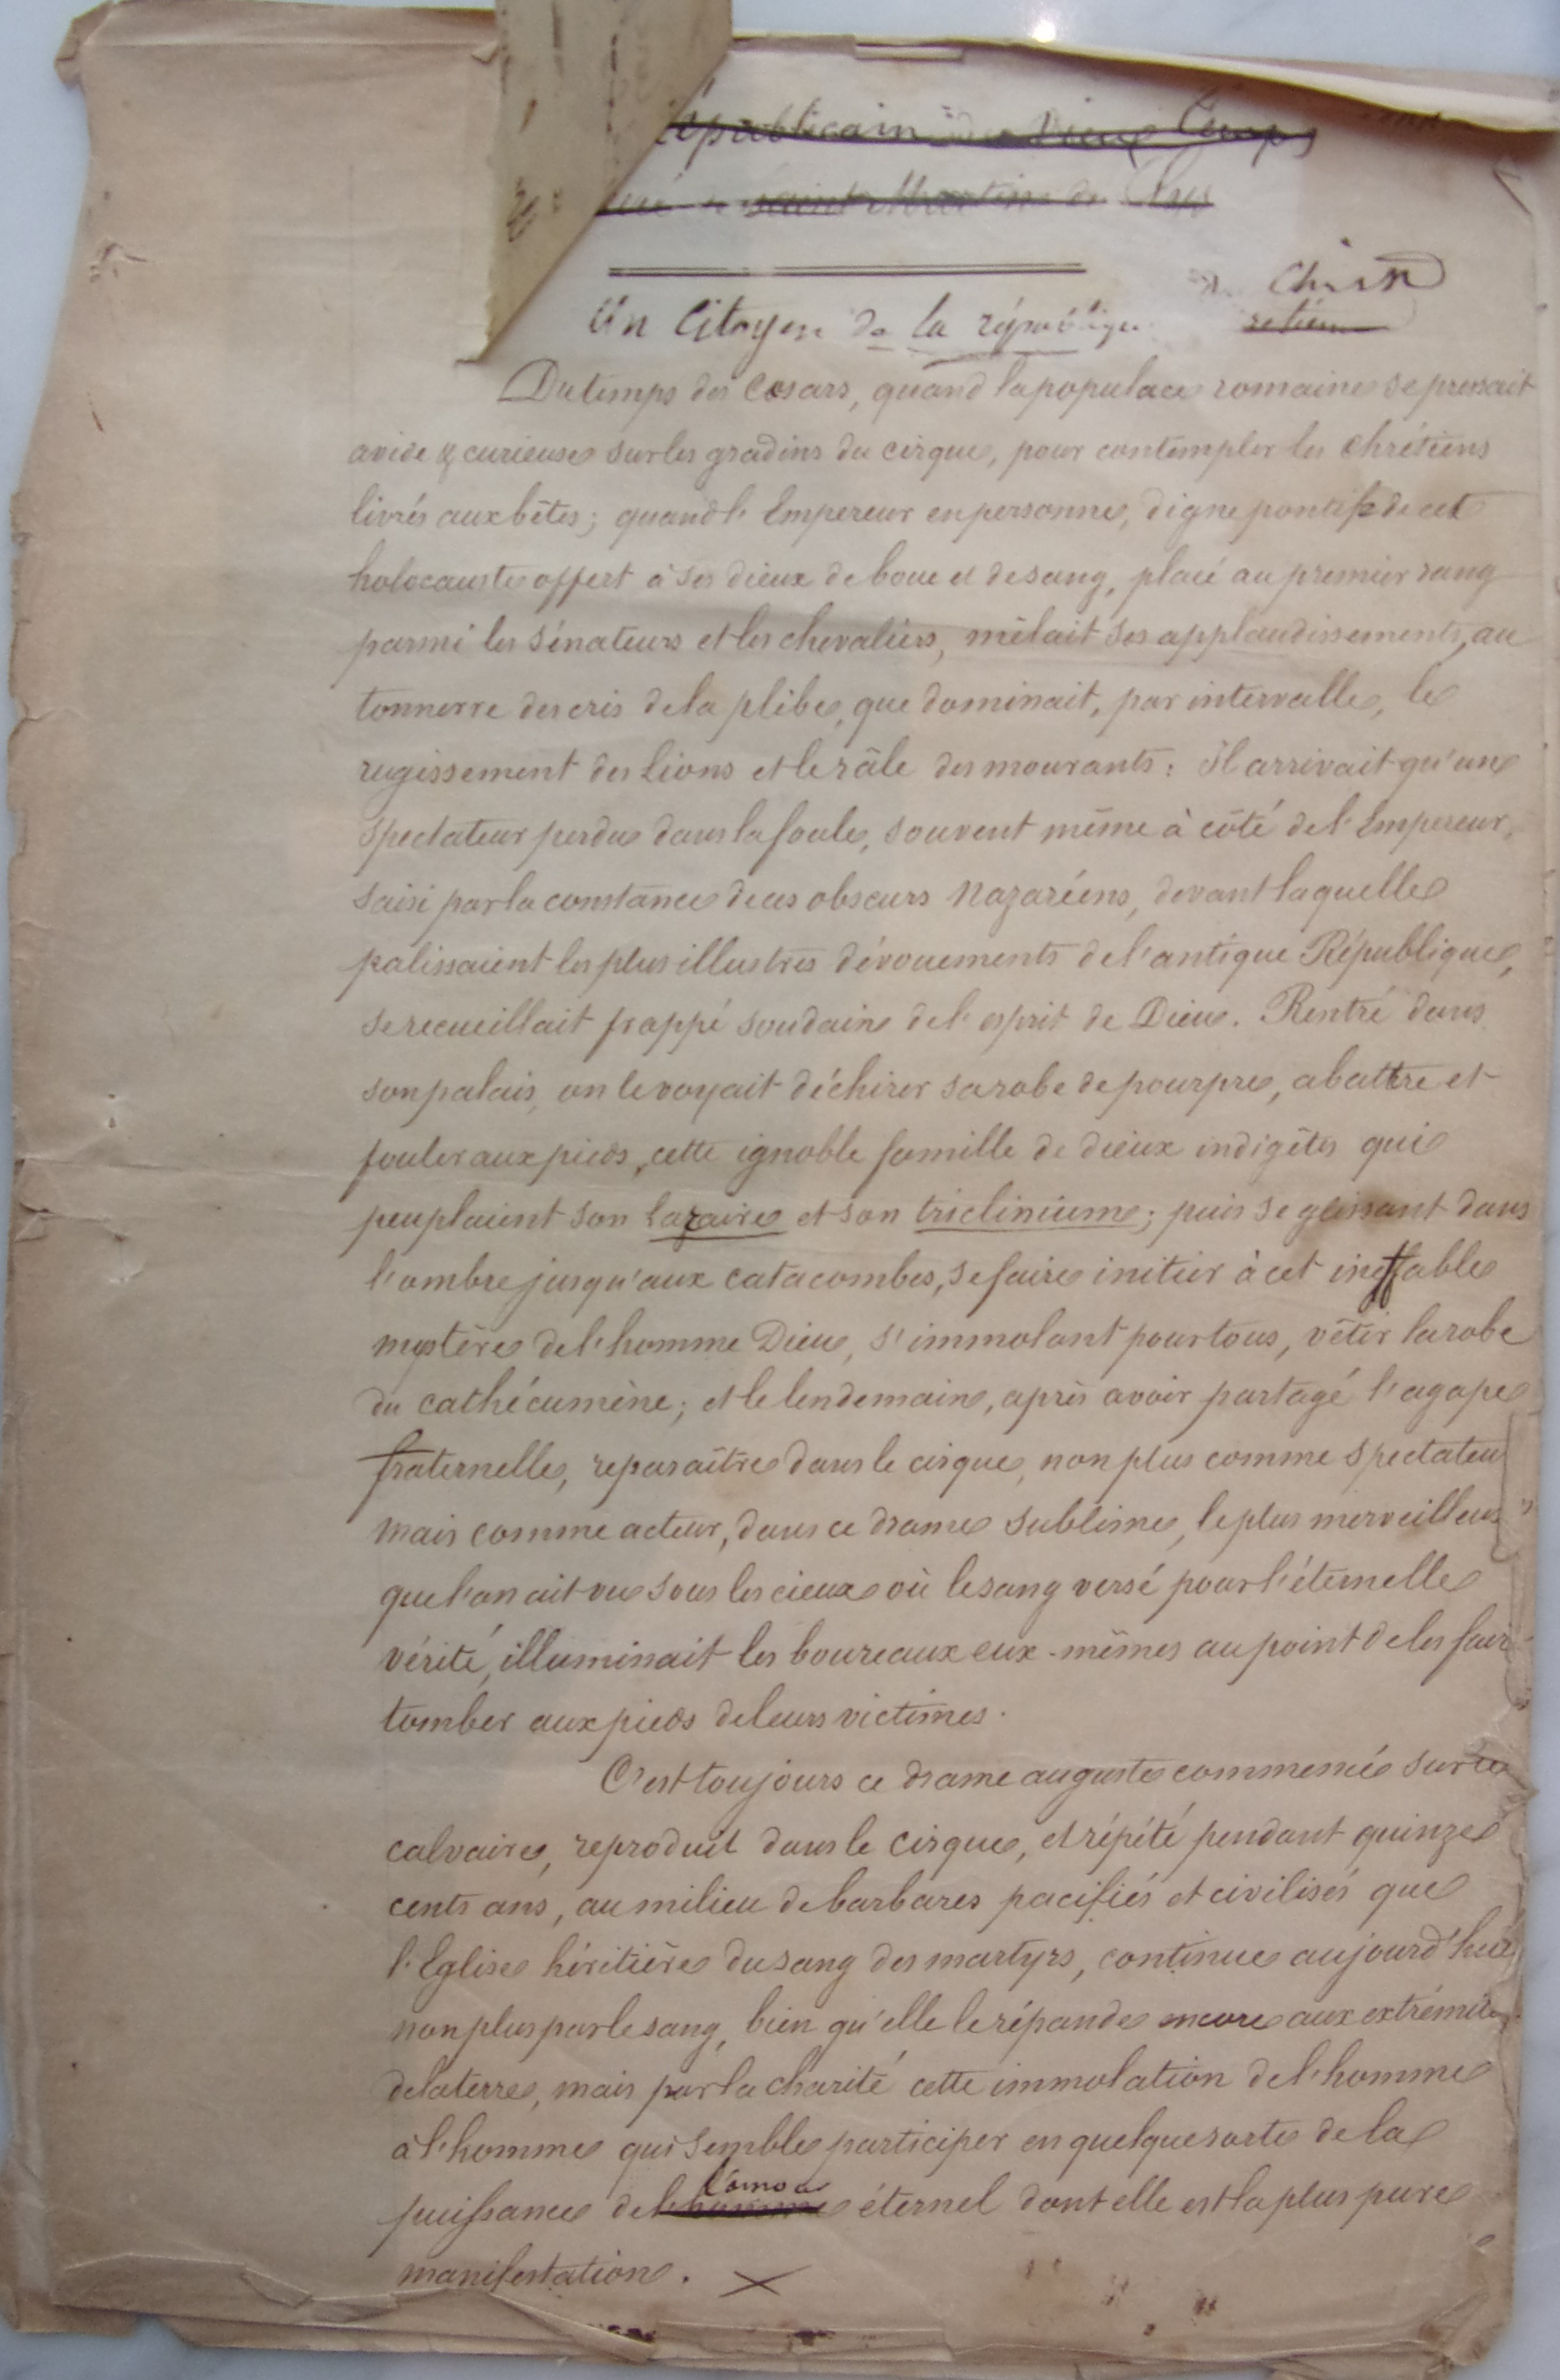 épublicain du Vieux Temps
de saint Martin de Lys
Un Citoyen de la république
Du temps des Cesars, quand la populace romaine se pressait
avide & curieuse sur les gradins du cirque, pour contempler les chrétiens
livrés aux bêtes; quand l'Empereur en personne, digne pontife de cet
holocauste offert à ses dieux de boue et de sang, placé au premier rang
parmi les sénateurs et les chevaliers, mêlait ses applaudissements, au
tonnerre des cris de la plèbe, que dominait, par intervalle, le
rugissement des lions et le râle des mourants: il arrivait qu'un
spectateur perdu dans la foule, souvent même à côté de l'Empereur,
saisi par la constance de ces obscurs Nazaréens, devant laquelle
palissaient les plus illustres dévouements de l'antique République,
se recueillait frappé soudain de l'esprit de Dieu. Rentré dans
son palais, on le voyait déchirer sa robe de pourpre, abattre et
fouler aux pieds, cette ignoble famille de dieux indigètes qui
peuplaient son laraire et son triclinium; puis se glissant dans
l'ombre jusqu'aux catacombes, se faire initier à cet ineffable
mystère de l'homme Dieu, s'immolant pour tous, vêtir la robe
du cathécumène; et le lendemain, après avoir partagé l'agape
fraternelle, reparaître dans le cirque, non plus comme spectateur
mais comme acteur, dans ce drame sublime, le plus merveilleux
que l'on ait vu sous les cieux où le sang versé pour l'éternelle
vérité, illuminait les boureaux eux-mêmes au point de les faire
tomber aux pieds de leurs victimes.
C'est toujours ce drame auguste commencé sur le
calvaire, reproduit dans le cirque, et répété pendant quinze
cents ans, au milieu de barbares pacifiés et civilisés que
l'Eglise héritière du sang des martyrs, continue aujourd'hui
non plus par le sang, bien qu'elle le répande encore aux extrémités
de la terre, mais par la charité cette immolation de l'homme
à l'homme qui semble participer en quelque sorte de la
l'amour
puissance de l'homme éternel dont elle est la plus pure
manifestation.